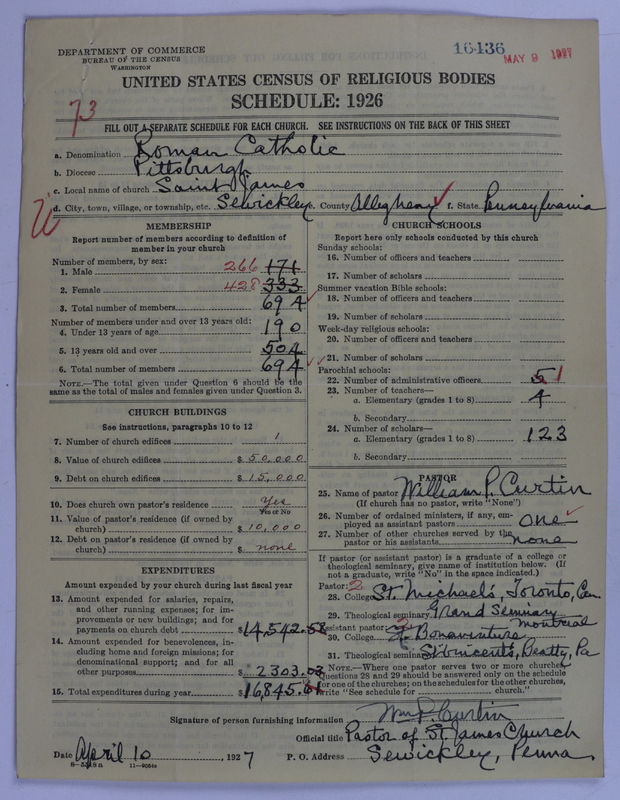 DEPARTMENT OF COMMERCE
BUREAU OF THE CENSUS
WASHINGTON
16436
MAY 9 1927
UNITED STATES CENSUS OF RELIGIOUS BODIES
SCHEDULE: 1926
73
FILL OUT A SEPARATE SCHEDULE FOR EACH CHURCH. SEE INSTRUCTIONS ON THE BACK OF THIS SHEET
a. Denomination Roman Catholic
b. Diocese Pittsburgh
c. Local name of church Saint James
d. City, town, village, or township, etc. Sewickley e. County Allegheny f. State Pennsylvania
MEMBERSHIP
Report number of members according to definition of
member in your church
Number of members, by sex:
1. Male 266 171
2. Female 428 333
3. Total number of members 694
Number of members under and over 13 years old:
4. Under 13 years of age 190
5. 13 years old and over 504
6. Total number of members 694
NOTE.—The total given under Question 6 should be the
same as the total of males and females given under Question 3.
CHURCH BUILDINGS
See instructions, paragraphs 10 to 12
7. Number of church edifices 1
8. Value of church edifices $ 50,000
9. Debt on church edifices $ 15,000
10. Does church own pastor's residence Yes
Yes or No
11. Value of pastor's residence (if owned by
church) $ 10,000
12. Debt on pastor's residence (if owned by
church) $ none
EXPENDITURES
Amount expended by your church during last fiscal year
13. Amount expended for salaries, repairs,
and other running expenses; for im-
provements or new buildings; and for
payments on church debt $ 14,542.58
14. Amount expended for benevolences, in-
cluding home and foreign missions; for
denominational support; and for all
other purposes $ 2303.03
15. Total expenditures during year $ 16,845.61
CHURCH SCHOOLS
Report here only schools conducted by this church
Sunday schools:
16. Number of officers and teachers
17. Number of scholars
Summer vacation Bible schools:
18. Number of officers and teachers
19. Number of scholars
Week-day religious schools:
20. Number of officers and teachers
21. Number of scholars
Parochial schools:
22. Number of administrative officers 5 1
23. Number of teachers—
a. Elementary (grades 1 to 8) 4
b. Secondary
24. Number of scholars—
a. Elementary (grades 1 to 8) 123
b. Secondary
PASTOR
25. Name of pastor William P. Curtin
(If church has no pastor, write "None")
26. Number of ordained ministers, if any, em-
ployed as assistant pastors one
27. Number of other churches served by the
pastor or his assistants none
If pastor (or assistant pastor) is a graduate of a college or
theological seminary, give name of institution below. (If
not a graduate, write "No" in the space indicated.)
Pastor: 2
28. College St. Michaels, Toronto, Can.
29. Theological seminary Grand Seminary
Montreal
Assistant pastor: 2
30. College St. Bonaventure
31. Theological seminary St Vincents, Beatty, Pa
NOTE.—Where one pastor serves two or more churches
Questions 28 and 29 should be answered only on the schedule
for one of the churches; on the schedules for the other churches,
write "See schedule for church."
Signature of person furnishing information Wm P. Curtin
Official title Pastor of St. James Church
Date April 10, 1927 P. O. Address Sewickley, Penna.